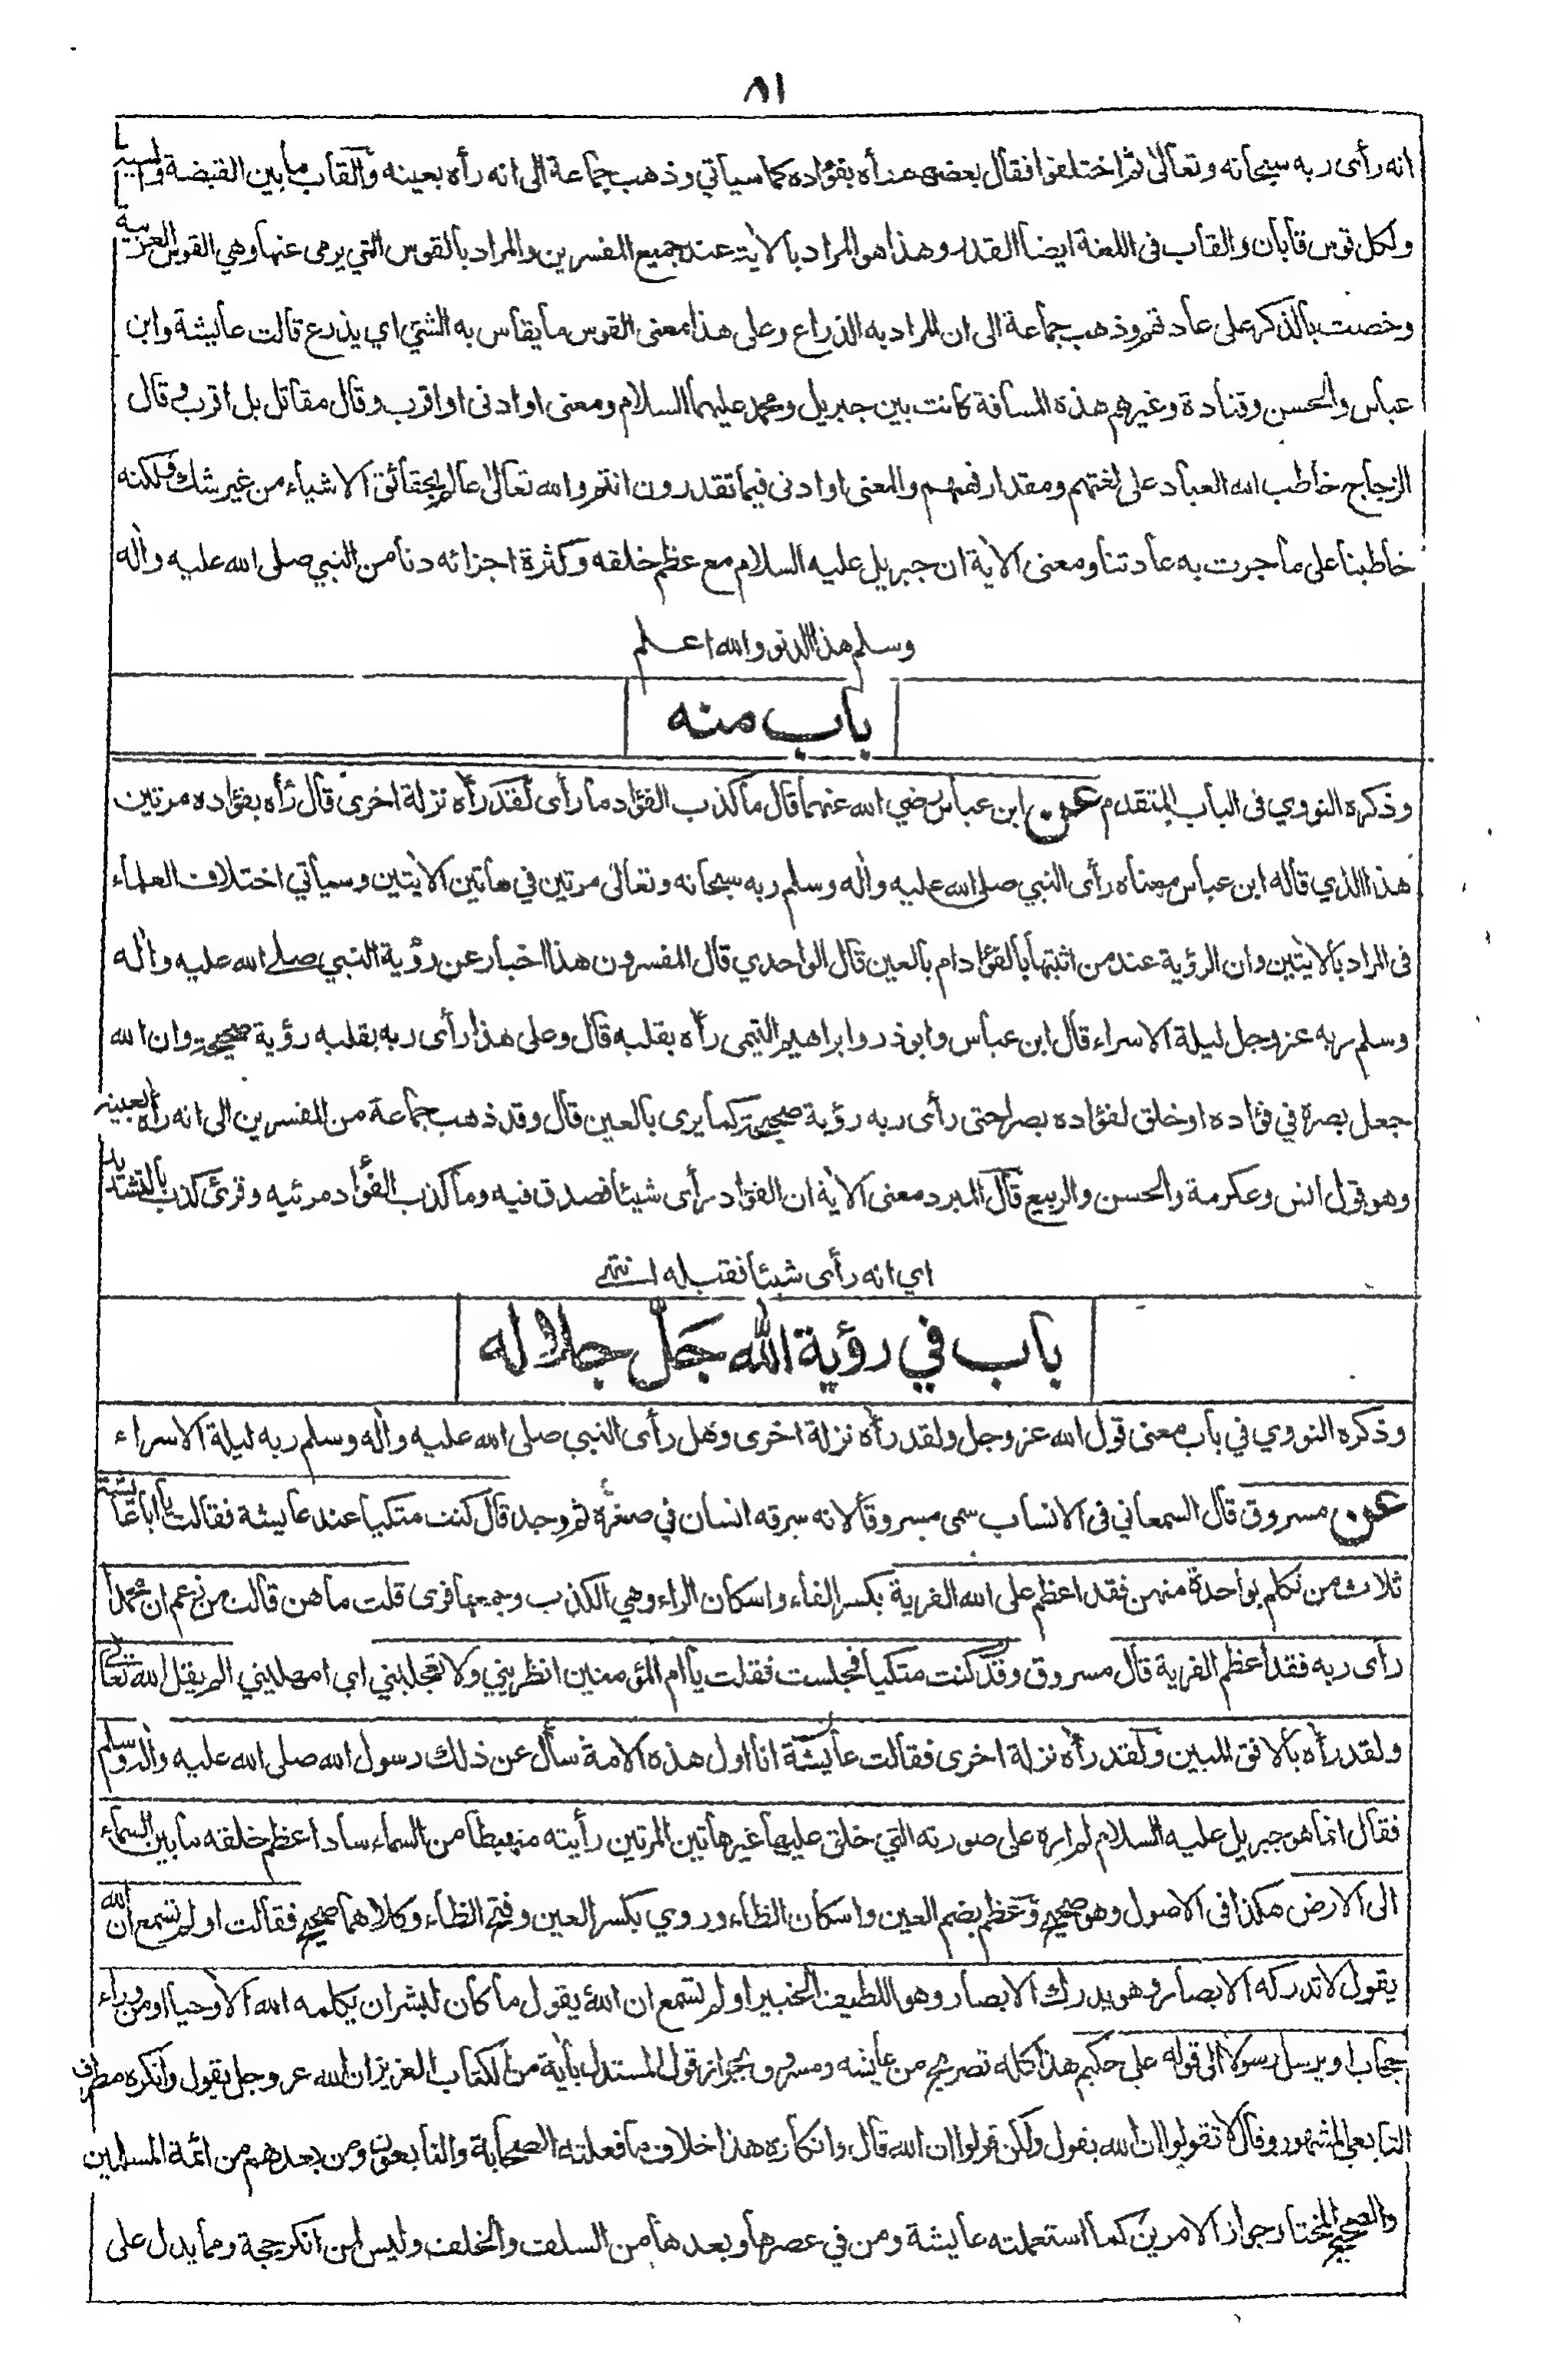 ٨١
انه رأى ربه سبحانه وتعالى ثم اختلفوا فقال بعضهم رأه بفؤاده كما سيأتي وذهب جماعة الى انه رأه بعينه والقاب ما بين القبضة والسية
ولكل قوس قابان والقاب فى اللغة ايضا القدر وهذا هو المراد بالآية عند جميع المفسرين والمراد بالقوس التي يرمى عنها وهي القوس العربية
وخصت بالذكر على عادتهم وذهب جماعة الى ان المراد به الذراع وعلى هذا معنى القوس ما يقاس به الشئ اي يذرع قالت عايشة وابن
عباس والحسن وقتادة وغيرهم هذه المسافة كانت بين جبريل ومحمد عليهما السلام ومعنى او ادنى او اقرب وقال مقاتل بل اقرب وقال
الزجاج خاطب الله العباد على لغتهم ومقدار فهمهم والمعنى او ادنى فيما تقدرون انتم والله تعالى عالم بحقائق الاشياء من غير شك ولكنه
خاطبنا على ما جرت به عادتنا ومعنى الآية ان جبريل عليه السلام مع عظم خلقه وكثرة اجزائه دنا من النبي صلى الله عليه وآله
وسلم هذا الدنو والله اعلم
باب منه
وذكره النووي فى الباب المتقدم عن ابن عباس رضي الله عنهما قال ما كذب الفؤاد ما رأى لقد رأه نزلة اخرى قال رأه بفؤاده مرتين
هذا الذي قاله ابن عباس معناه رأى النبي صلى الله عليه وآله وسلم ربه سبحانه وتعالى مرتين في هاتين الآيتين وسيأتي اختلاف العلماء
فى المراد بالآيتين وان الرؤية عند من اثبتها بالفؤاد ام بالعين قال الواحدي قال المفسرون هذا اخبار عن رؤية النبي صلى الله عليه وآله
وسلم ربه عز وجل ليلة الاسراء قال ابن عباس وابوذر وابراهيم التيمى رأه بقلبه قال وعلى هذا رأى ربه بقلبه رؤية صحيحة وان الله
جعل بصره في فؤاده او خلق لفؤاده بصرا حتى رأى ربه رؤية صحيحة كما يرى بالعين قال وقد ذهب جماعة من المفسرين الى انه رأه بعينه
وهو قول انس وعكرمة والحسن والربيع قال المبرد معنى الآية ان الفؤاد رأى شيئا فصدق فيه وما كذب الفؤاد مرئيه وقرئ كذب بالتشديد
اي انه رأى شيئا فقبله انتهى
باب في رؤية الله جَلّ جلاله
وذكره النووي في باب معنى قول الله عز وجل ولقد رأه نزلة اخرى وهل رأى النبي صلى الله عليه وآله وسلم ربه ليلة الاسراء
عن مسروق قال السمعاني فى الانساب سمى مسروقا لانه سرقه انسان في صغره ثم وجد قال كنت متكيا عند عايشة فقالت يا ابا عايشة
ثلاث من تكلم بواحدة منهن فقد اعظم على الله الفرية بكسر الفاء واسكان الراء وهي الكذب وجمعها فرى قلت ما هن قالت من زعم ان محمدا
رأى ربه فقد اعظم الفرية قال مسروق وقد كنت متكيا فجلست فقلت يا ام المؤمنين انظريني ولا تعجليني اي امهليني الم يقل الله تعالى
ولقد رأه بالافق المبين ولقد رأه نزلة اخرى فقالت عايشة انا اول هذه الامة سأل عن ذلك رسول الله صلى الله عليه وآله وسلم
فقال انما هو جبريل عليه السلام لم اره على صورته التي خلق عليها غير هاتين المرتين رأيته منهبطا من السماء سادا عظم خلقه ما بين السماء
الى الارض هكذا فى الاصول وهو صحيح وعظم بضم العين واسكان الظاء وروي بكسر العين وفتح الظاء وكلاهما صحيح فقالت اولم تسمع ان الله
يقول لا تدركه الابصار وهو يدرك الابصار وهو اللطيف الخبير اولم تسمع ان الله يقول ما كان لبشر ان يكلمه الله الا وحيا او من وراء
حجاب او يرسل رسولا الى قوله علي حكيم هذا كله تصريح من عايشة ومسروق بجواز قول المستدل بآية من الكتاب العزيز ان الله عز وجل يقول وانكره مطرف
التابعي المشهور وقال لا تقولوا ان الله يقول ولكن قولوا ان الله قال وانكاره هذا خلاف ما فعلته الصحابة والتابعون ومن بعدهم من ائمة المسلمين
والصحيح المختار جواز الامرين كما استعملته عايشة ومن في عصرها وبعدها من السلف والخلف وليس لمن انكر حجة ومما يدل على